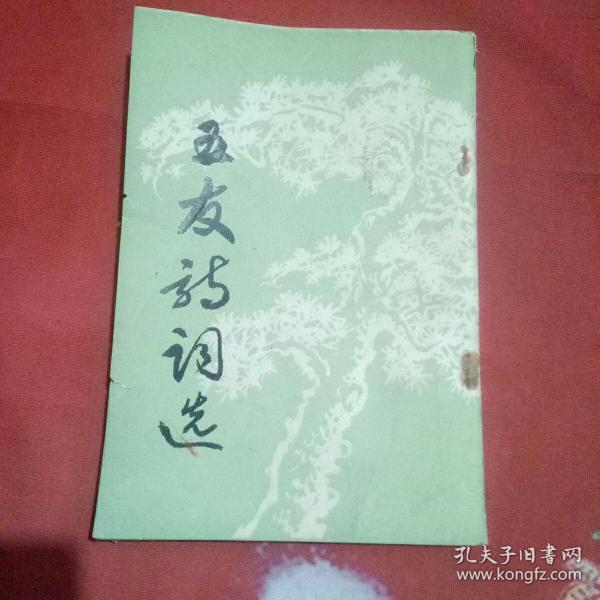 五友诗词选
孔夫子旧書网
www.kongfz.com